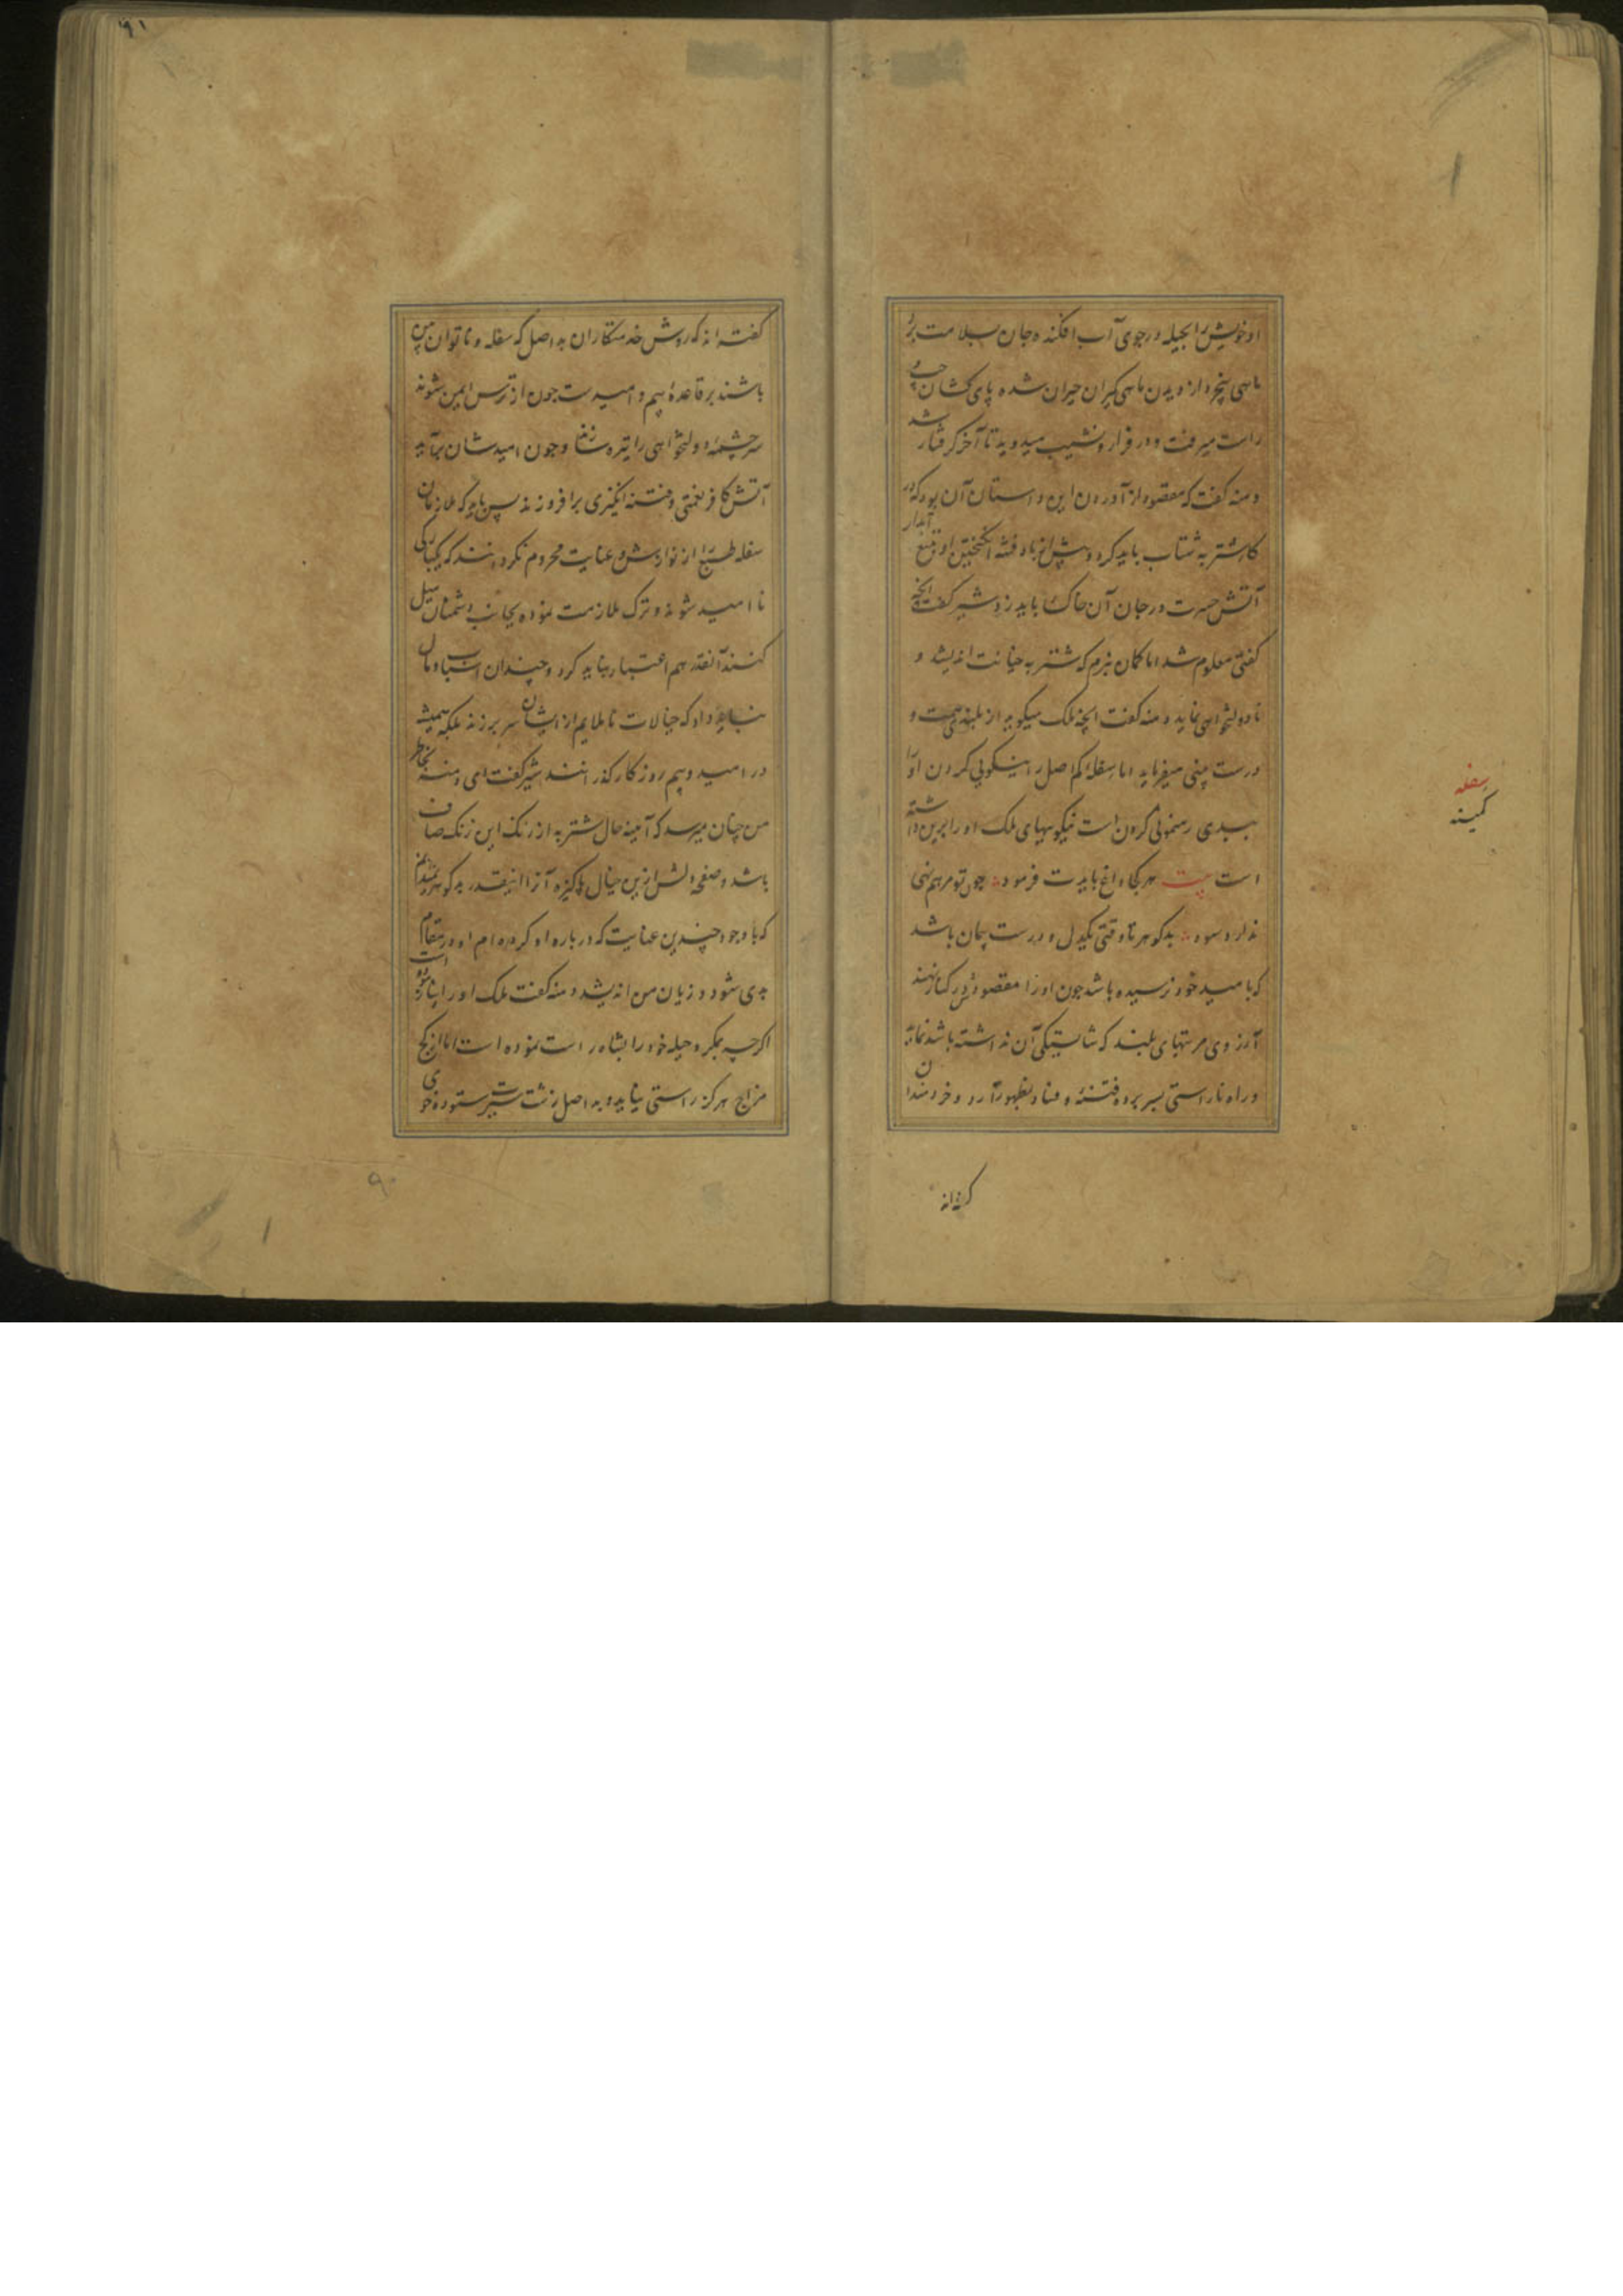 او خویش را بحیله در جوی آب افکنده جان بسلامت برد
ماهی بیخرد از دیدن ماهی گیران حیران شده پای کشان چپ و
راست میرفت و در فراز و نشیب میدوید تا آخر گرفتار شد
دمنه گفت که مقصود از آوردن این داستان آن بود که در
کار شتربه شتاب باید کرد و پیش از باد فتنه انگیختن او بتیغ آبدار
آتش حسرت در جان آن خاک باید زد شیر گفت انچه
گفتی معلوم شد اما گمان نبرم که شتربه خیانت اندیشد و
نادولتخواهی نماید دمنه گفت انچه ملک میگوید از بلند همت و
درست بینی میفرماید اما سفله کم اصل را نیکویی کردن او را
ببدی رهنمونی کردن است نیکوییهای ملک او را برین داشته
است بیت هر کجا داغ بایدت فرمود چون تو مرهم نهی
ندارد سود بدگوهر تا وقتی یکدل و درست پیمان باشد
که بامید خود نرسیده باشد چون او را مقصودش در کنار نهند
آرزوی مرتبهای بلند که شایستگی آن نداشته باشد نماید
و راه ناراستی بسر برده فتنه و فساد بظهور آرد و خردمندان
گفته اند
سفله
کمینه
۹۱
گفته اند که روش خدمتکاران بد اصل که سفله و ناتوان بین
باشند بر قاعدهٔ بیم و امید است چون از ترس ایمن شوند
سرچشمهٔ دولتخواهی را تیره سازند و چون امیدشان برآید
آتش کافر نعمتی و فتنه انگیزی برافروزند پس باید که ملازمان
سفله طبع را از نوازش و عنایت محروم نگردانند که یکبارگی
نا امید شوند و ترک ملازمت نموده بجانب دشمنان میل
کنند آنقدر هم اعتبار نباید کرد و چندان اسباب و مال
نباید داد که خیالات ناملایم از ایشان سر برزند بلکه همیشه
در امید و بیم روزگار گذرانند شیر گفت ای دمنه بخاطر
من چنان میرسد که آیینه حال شتربه از رنگ این زنگ صاف
باشد و صفحه دلش ازین خیال پاکیزه آنرا اینقدر بدگوهر نمیدانم
که با وجود چندین عنایت که در باره او کرده ام او در مقام
بدی شود و زیان من اندیشد دمنه گفت ملک او را
اگرچه بمکر و حیله خود را بشاه راست نموده است اما از کج
مزاج هرگز راستی نیاید و بد اصل زشت سیرت ستوده خوی
۹۰